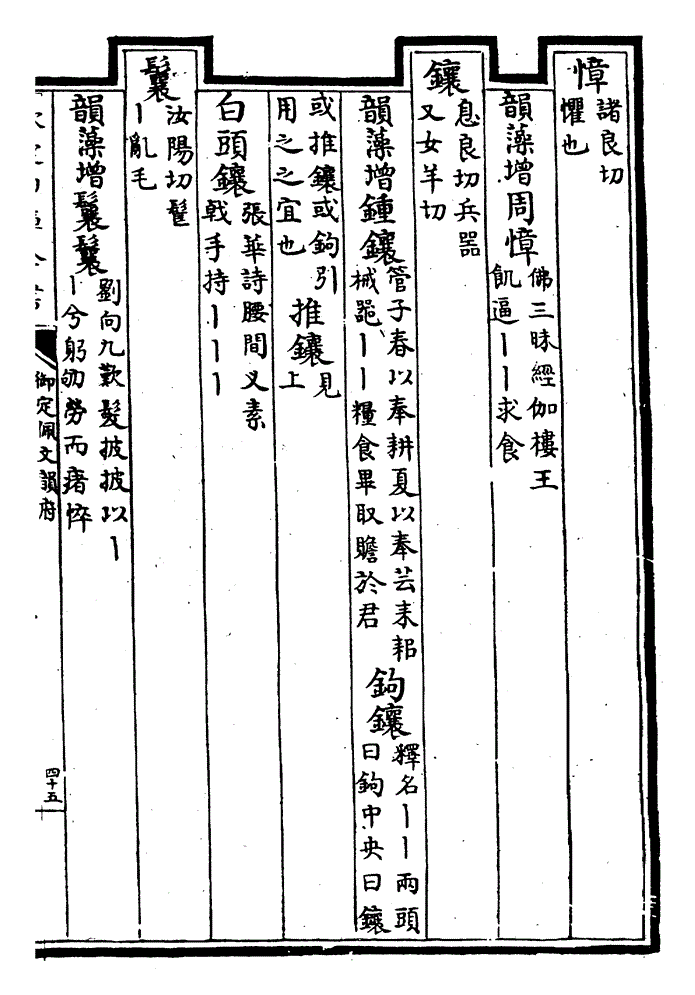 慞諸良切
懼也
韻藻增周慞佛三昧經伽樓王
飢逼丨丨求食
鑲息良切兵器
又女羊切
韻藻增鍾鑲管子春以奉耕夏以奉芸耒耜
械器丨丨糧食畢取贍於君
鉤鑲釋名丨丨兩頭
曰鉤中央曰鑲
或推鑲或鉤引
用之之宜也
推鑲見
上
白頭鑲張華詩腰間义素
戟手持丨丨丨
鬤汝陽切髶
丨亂毛
韻藻增鬤鬤劉向九歎髮披披以丨
丨兮躬劬勞而瘏悴
御定佩文韻府
四十五